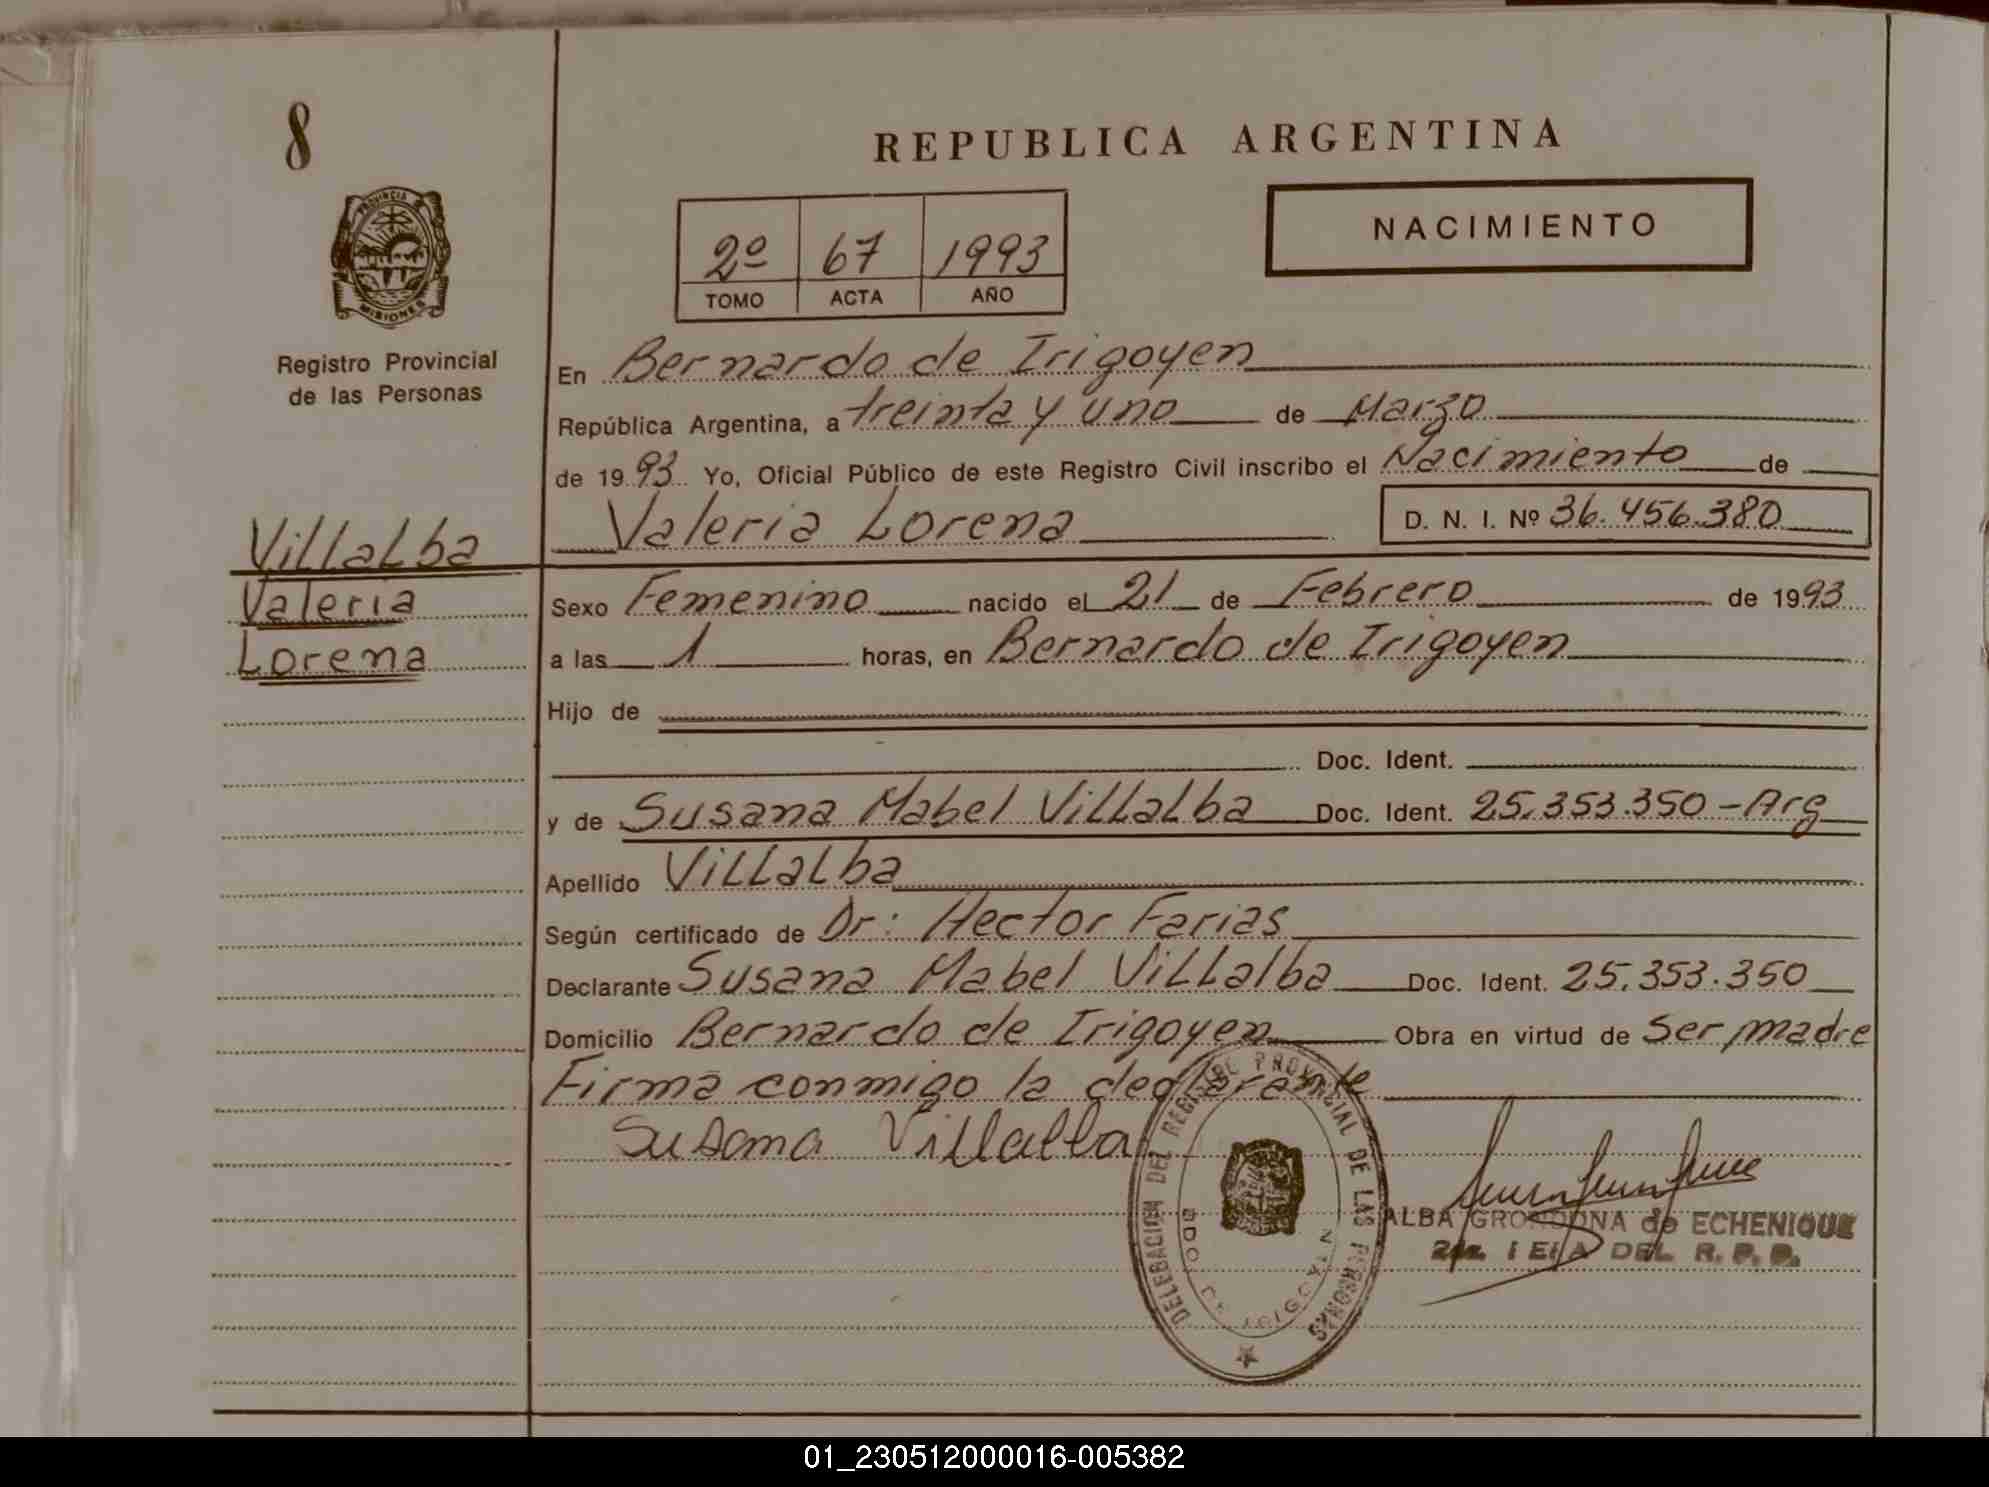 8
REPUBLICA ARGENTINA
PROVINCIA DE
MISIONES
Registro Provincial
de las Personas
2º 67 1993
TOMO ACTA AÑO
NACIMIENTO
En Bernardo de Irigoyen
República Argentina, a treinta y uno de Marzo
de 1993 Yo, Oficial Público de este Registro Civil inscribo el Nacimiento de
Valeria Lorena D. N. I. Nº 36.456.380
Villalba
Valeria
Lorena
Sexo Femenino nacido el 21 de Febrero de 1993
a las 1 horas, en Bernardo de Irigoyen
Hijo de
Doc. Ident.
y de Susana Mabel Villalba Doc. Ident. 25.353.350 - Arg
Apellido Villalba
Según certificado de Dr: Hector Farias
Declarante Susana Mabel Villalba Doc. Ident. 25.353.350
Domicilio Bernardo de Irigoyen Obra en virtud de Ser madre
Firma conmigo la declarante
Susana Villalba
DELEGACION DEL REGISTRO PROVINCIAL DE LAS PERSONAS
BDO DE IRIGOYEN
ALBA GRONDONA de ECHENIQUE
DEL R. P. P.
01_230512000016-005382